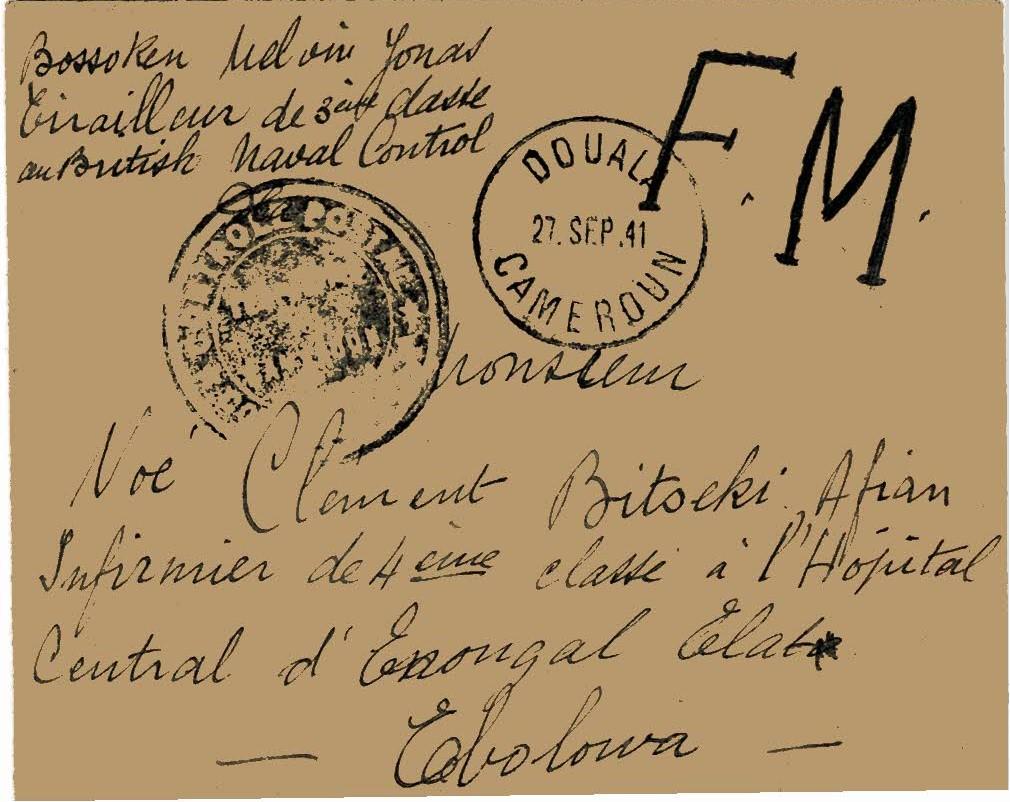 Bossoken Melvin Jonas
Tirailleur de 3ème classe
au British Naval Control
Dla
F.M.
DOUALA
27. SEP. 41
CAMEROUN
CONTROLE POSTAL
Monsieur
Noé Clement Bitseki Afian
Infirmier de 4 ème classe à l'Hôpital
Central d'Enongal Elat
— Ebolowa —